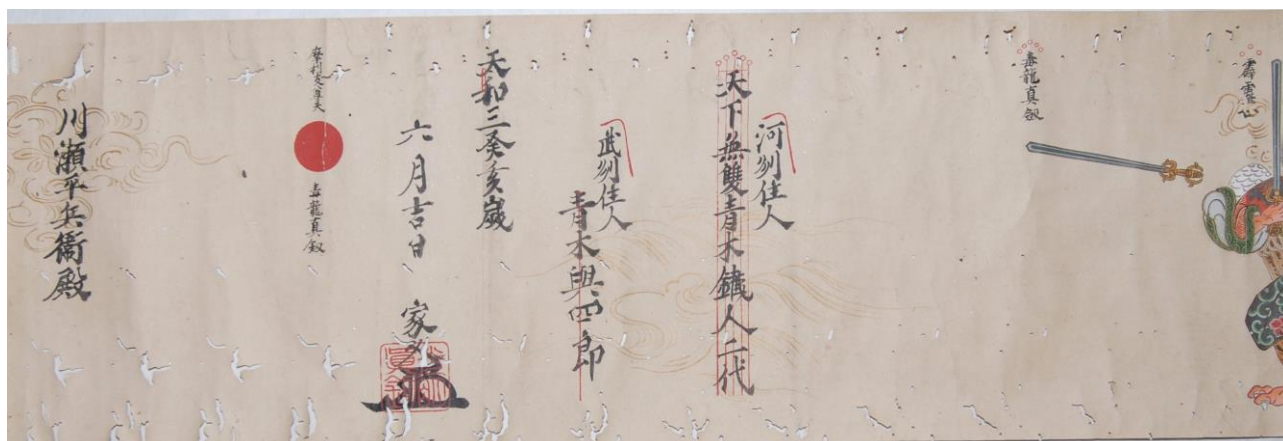 霹靂仙
毒龍真剱
河刕住人
天下無雙青木鐵人二代
武刕住人
青木與四郎
天和三癸亥歳
六月吉日
家久
摩利支尊天
毒龍真剱
川瀬平兵衛殿